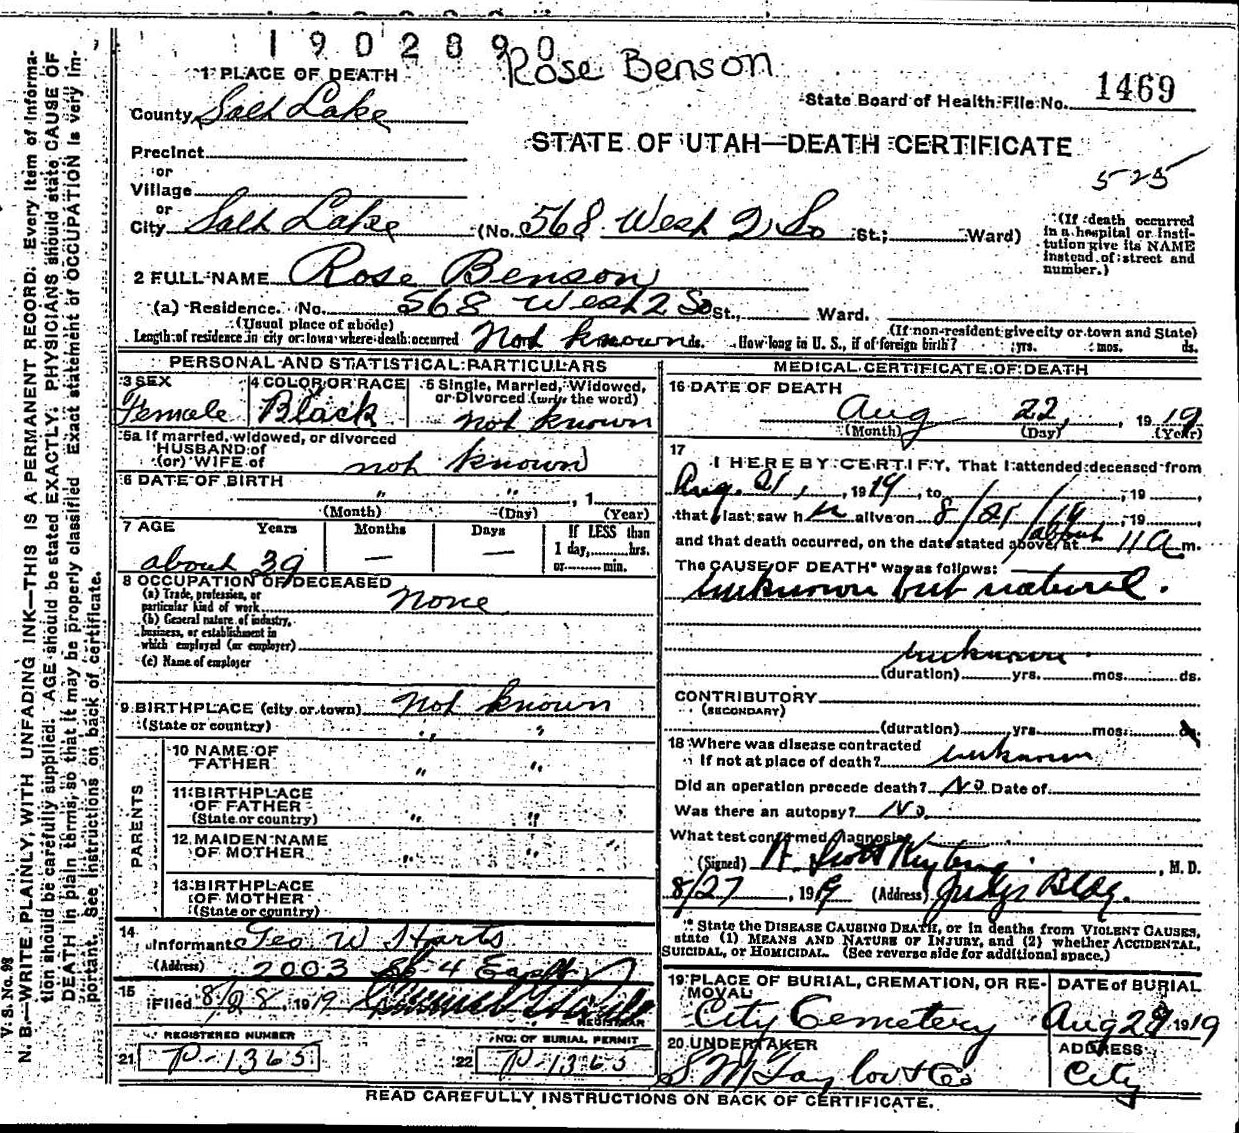 1902890
Rose Benson
1 PLACE OF DEATH
State Board of Health File No. 1469
County Salt Lake
STATE OF UTAH—DEATH CERTIFICATE
Precinct
or
525
Village
or
City Salt Lake (No. 568 West 2 So St.; Ward)
(If death occurred in a hospital or institution give its NAME instead of street and number.)
2 FULL NAME Rose Benson
(a) Residence. No. 568 West 2 So St., Ward.
(Usual place of abode) (If non-resident give city or town and State)
Length of residence in city or town where death occurred Not known ds. How long in U. S., if of foreign birth? yrs. mos. ds.
PERSONAL AND STATISTICAL PARTICULARS
3 SEX 4 COLOR OR RACE 5 Single, Married, Widowed, or Divorced (write the word)
Female Black not known
5a If married, widowed, or divorced
HUSBAND of
(or) WIFE of not known
6 DATE OF BIRTH " " , 1
(Month) (Day) (Year)
7 AGE Years Months Days If LESS than
1 day, hrs.
about 39 — — or min.
8 OCCUPATION OF DECEASED
(a) Trade, profession, or
particular kind of work none
(b) General nature of industry,
business, or establishment in
which employed (or employer)
(c) Name of employer
9 BIRTHPLACE (city or town) not known
(State or country) " "
PARENTS
10 NAME OF
FATHER " "
11 BIRTHPLACE
OF FATHER
(State or country) " "
12 MAIDEN NAME
OF MOTHER " "
13 BIRTHPLACE
OF MOTHER
(State or country)
14
Informant Geo W Harts
(Address) 2003
15
Filed 8/28, 1919
REGISTRAR
REGISTERED NUMBER NO. OF BURIAL PERMIT
21 P-1365 22 P-1365
MEDICAL CERTIFICATE OF DEATH
16 DATE OF DEATH
Aug 22, 1919
(Month) (Day) (Year)
17
I HEREBY CERTIFY, That I attended deceased from
Aug. 21, , 1919, to , 19 ,
that I last saw h alive on 8/21/19 , 19 ,
and that death occurred, on the date stated above, at about 11 a m.
The CAUSE OF DEATH* was as follows:
unknown but natural.
unknown.
(duration) yrs. mos. ds.
CONTRIBUTORY
(SECONDARY)
(duration) yrs. mos. ds.
18 Where was disease contracted
If not at place of death? unknown
Did an operation precede death? No Date of
Was there an autopsy? No.
What test confirmed diagnosis
(Signed) Scott , M. D.
8/27, 1919 (Address) Judge Bldg.
* State the DISEASE CAUSING DEATH, or in deaths from VIOLENT CAUSES,
state (1) MEANS AND NATURE OF INJURY, and (2) whether ACCIDENTAL,
SUICIDAL, or HOMICIDAL. (See reverse side for additional space.)
19 PLACE OF BURIAL, CREMATION, OR REMOVAL DATE OF BURIAL
City Cemetery Aug 29 1919
20 UNDERTAKER ADDRESS
S M Taylor & Co City
READ CAREFULLY INSTRUCTIONS ON BACK OF CERTIFICATE.
V. S. No. 98
N. B.—WRITE PLAINLY, WITH UNFADING INK—THIS IS A PERMANENT RECORD. Every item of information should be carefully supplied. AGE should be stated EXACTLY. PHYSICIANS should state CAUSE OF DEATH in plain terms, so that it may be properly classified. Exact statement of OCCUPATION is very important. See instructions on back of certificate.